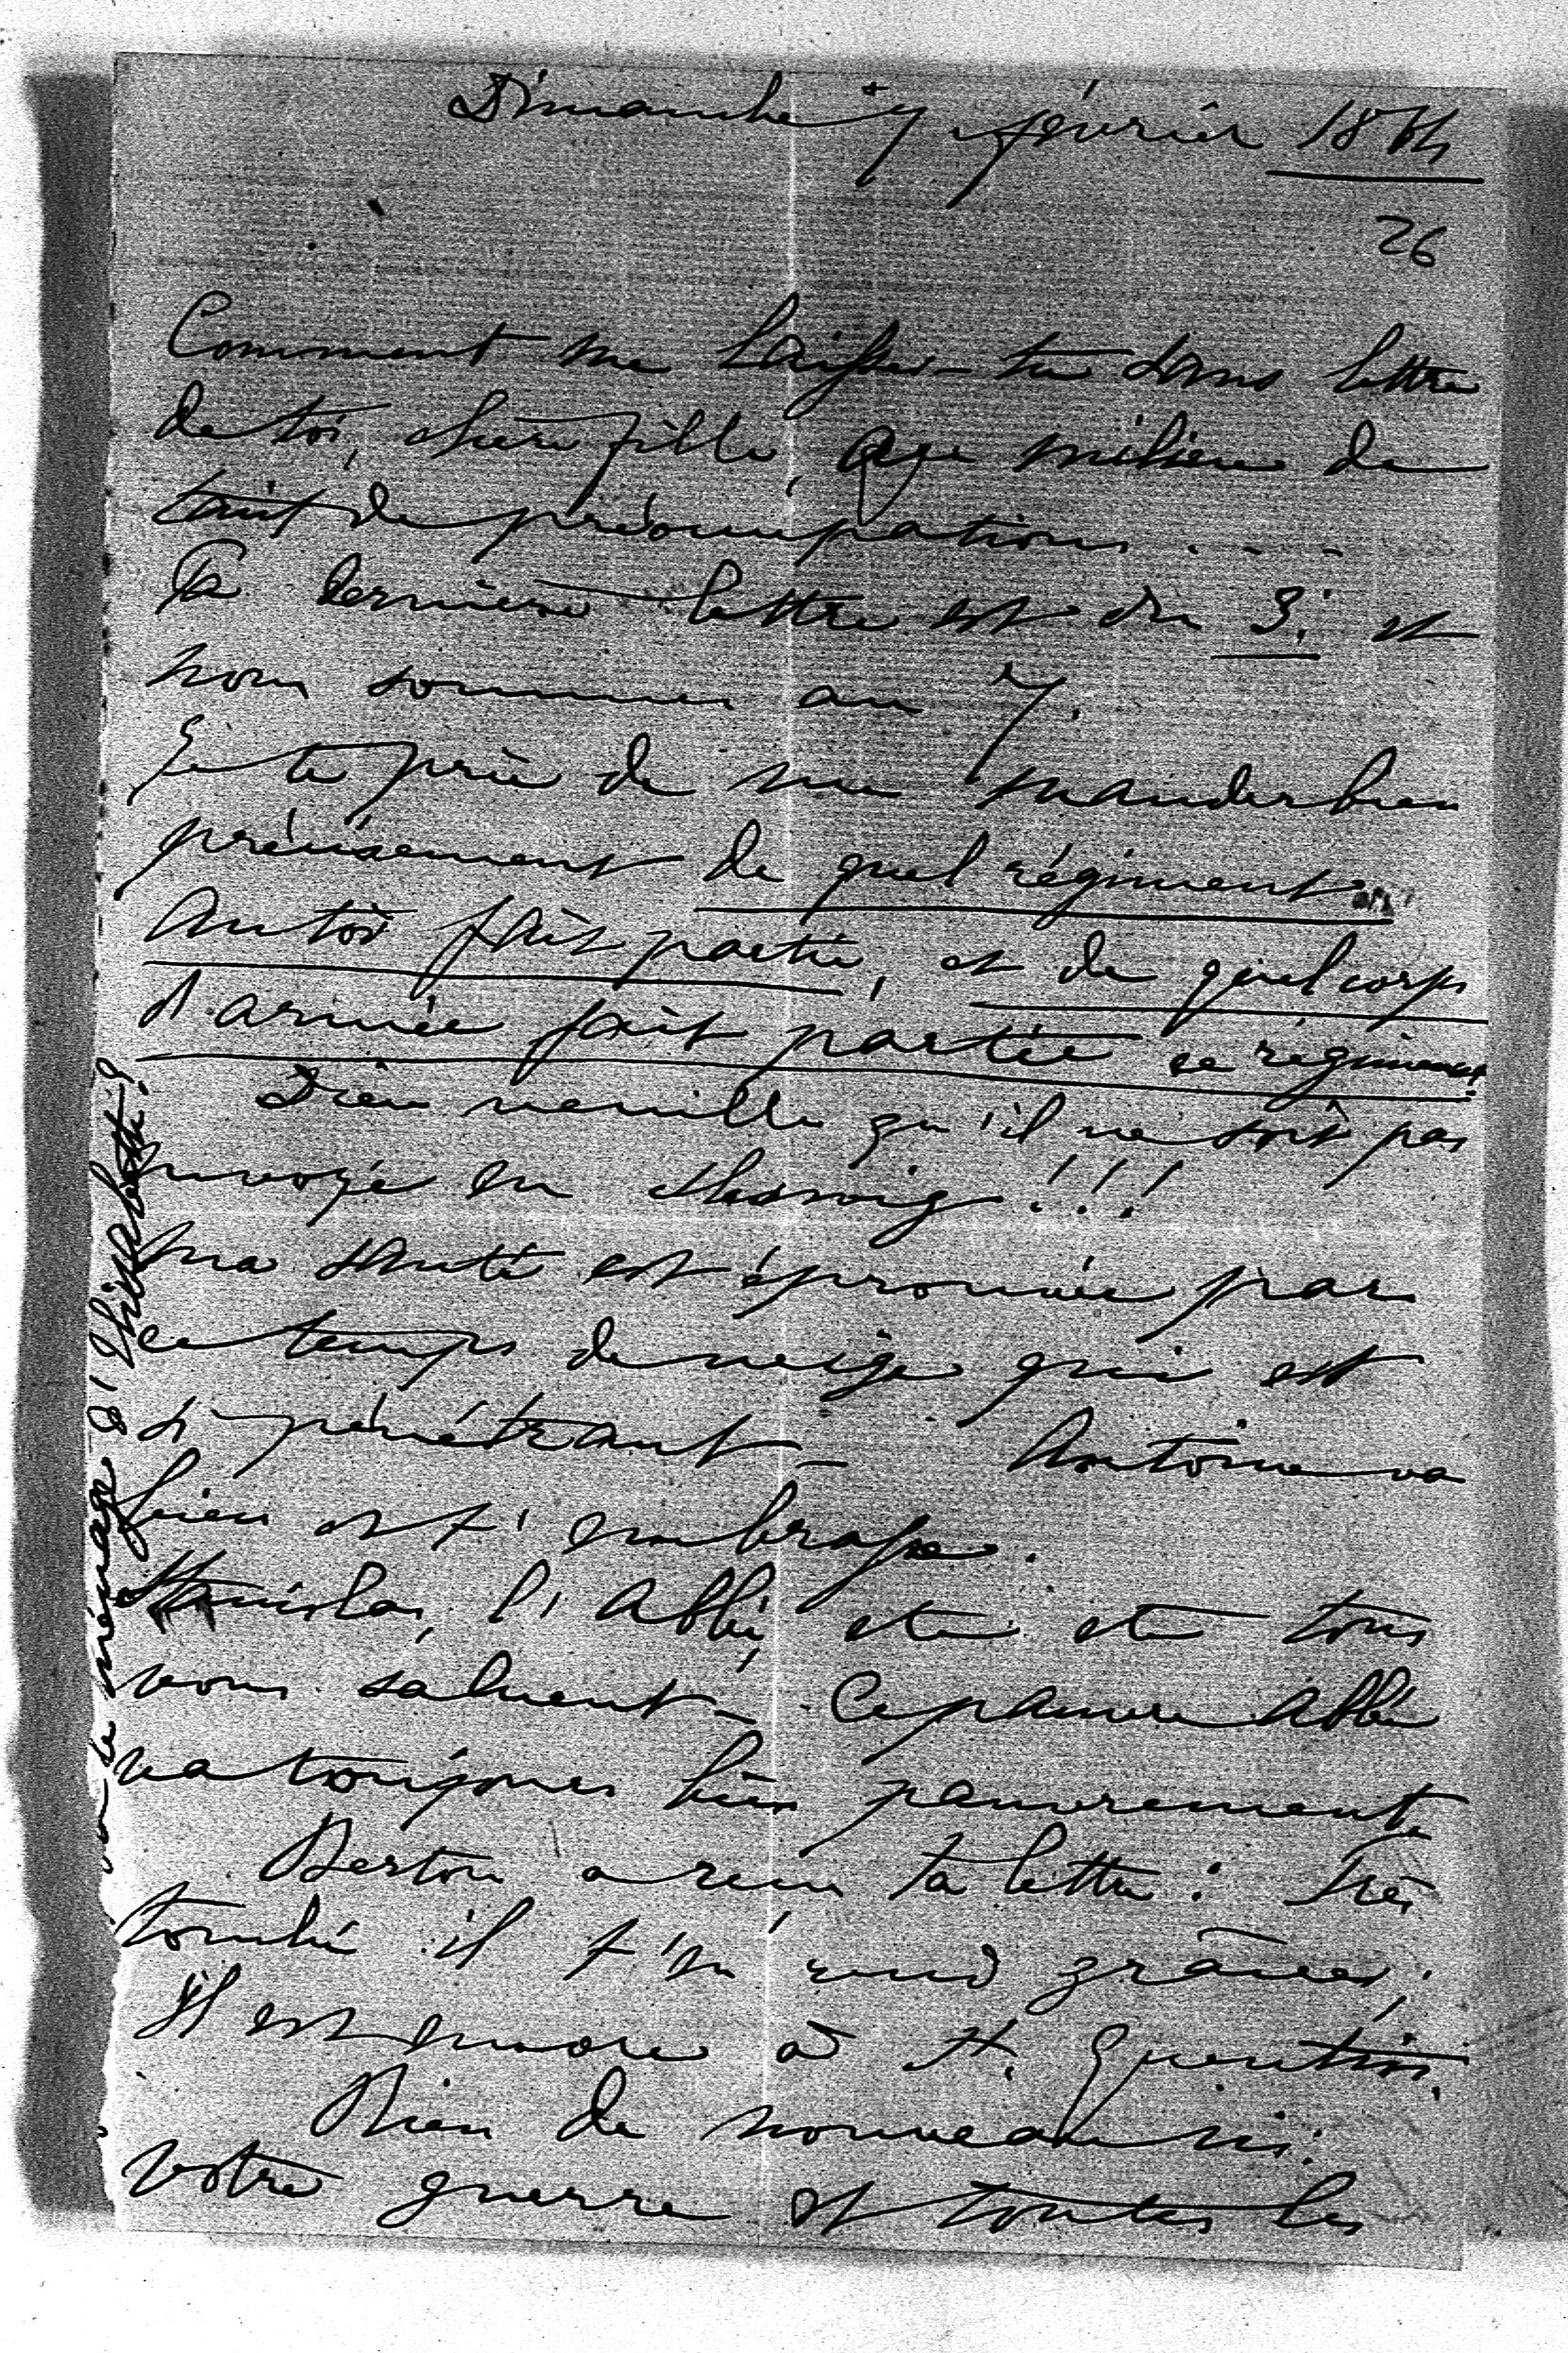 Dimanche 7 février 1864
26
Comment me laisses-tu sans lettre
de toi, chère fille, au milieu de
tant de préoccupations . . . .
Ta dernière lettre est du 3. et
nous sommes au 7.
Je te prie de me mander bien
précisément de quel régiment
Antoi fait partie, et de quel corps
d'armée fait partie ce régiment.
Dieu veuille qu'il ne soit pas
envoyé en Sleswig!!!
Ma santé est éprouvée par
ce temps de neige qui est
si pénétrant_ Antoine va
bien et t'embrasse.
Stanislas, l'Abbé, etc etc tous
vous saluent_ Ce pauvre Abbé
va toujours bien pauvrement.
Berton a reçu ta lettre: Très
touché il t'en rend grâces;
Il est encore à St. Quentin.
Rien de nouveau ici.
Votre guerre et toutes les
le ménage d'